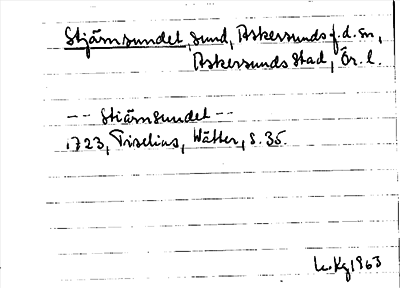 Stjärnsundet, sund, Askersunds f.d. sn,
Askersunds stad, Ör. l.
-- Stiärnsundet --
1723, Tiselius, Wätter, s. 35.
1963